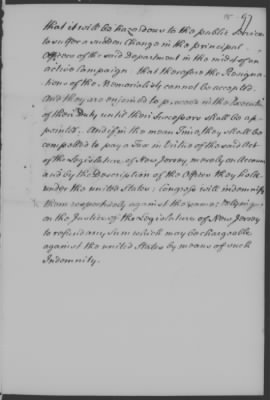 97
that it will be hazardous to the public Service
to suffer a sudden Change in the principal
Officers of the said Department in the midst of an
active Campaign. that therefore the Resigna
tions of the Memorialists cannot be accepted.
And they are enjoined to proceed in the Execution
of their Duty until their Successors shall be ap
pointed. And if in the mean Time they shall be
compelled to pay a Tax in Virtue of the said Act
of the Legislature of New Jersey merely on Account
and by the Description of the Offices they hold
under the united States; Congress will indemnify
them respectively against the same: relying
on the Justice of the Legislature of New Jersey
to refund any Sum which may be chargeable
against the united States by means of such
Indemnity.